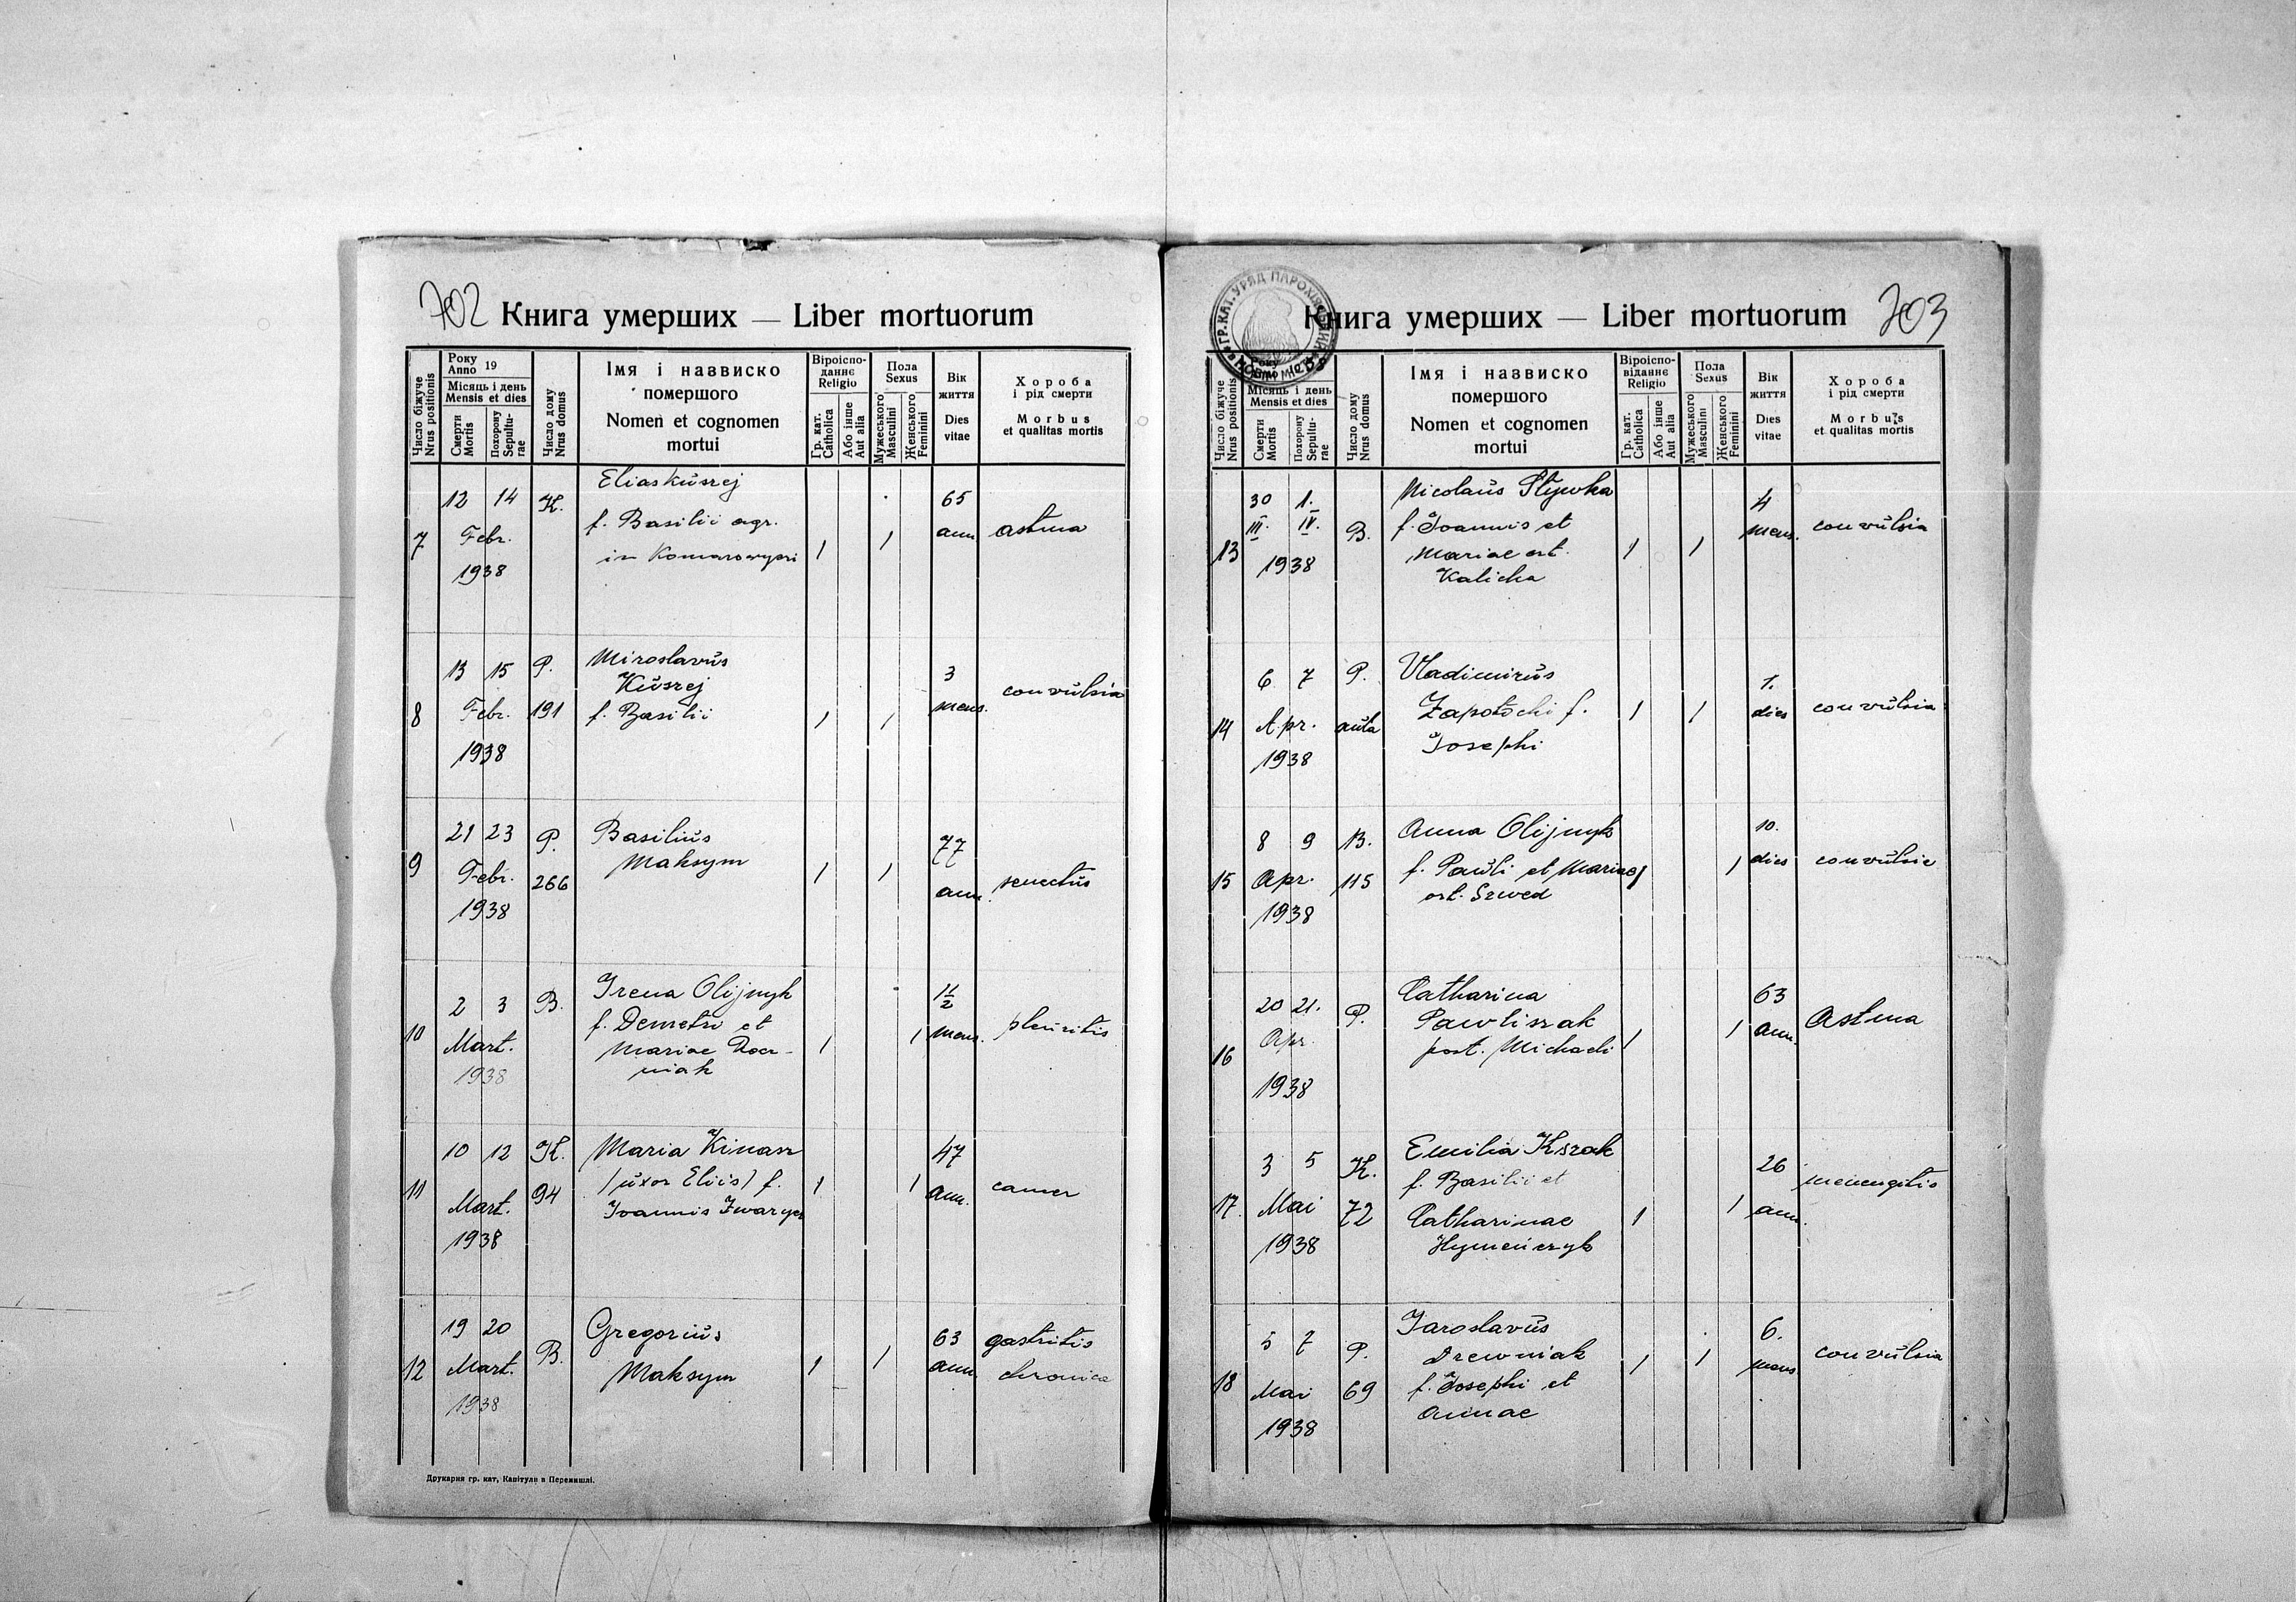 702 Книга умерших — Liber mortuorum
Число біжуче
Nrus positionis
Року
Anno 19
Місяць і день
Mensis et dies
Смерти
Mortis
Похорону
Sepultu-
rae
Число дому
Nrus domus
Імя і назвиско
помершого
Nomen et cognomen
mortui
Віроіспо-
даннє
Religio
Гр. кат.
Catholica
Або інше
Aut alia
Пола
Sexus
Мужеського
Masculini
Женського
Feminini
Вік
життя
Dies
vitae
Хороба
і рід смерти
Morbus
et qualitas mortis
7
12 14
Febr.
1938
K.
Elias Kuszej
f. Basilii agr.
in
1 1
65
ann
astma
8
13 15
Febr.
1938
P.
191
Miroslavus
Kuszej
f. Basilii
1 1
3
mens.
convulsia
9
21 23
Febr.
1938
P.
266
Basilius
Maksym
1 1
77
ann.
senectus
10
2 3
Mart.
1938
B.
Irena Olijnyk
f. Demetri et
Mariae
niak
1 1
1 1/2
mens.
pleuritis
11
10 12
Mart.
1938
K.
94
Maria Kinasz
(uxor Eliis) f.
Joannis Zwarycz
1 1
47
ann.
cancer
12
19 20
Mart.
1938
B.
Gregorius
Maksym
1 1
63
ann.
gastritis
chronica
Друкарня гр. кат, Капітули в Перемишлі.
Книга умерших — Liber mortuorum 703
ГР. КАТ. УРЯД ПАРОХІЯ
Число біжуче
Nrus positionis
Місяць і день
Mensis et dies
Смерти
Mortis
Похорону
Sepultu-
rae
Число дому
Nrus domus
Імя і назвиско
помершого
Nomen et cognomen
mortui
Віроіспо-
віданнє
Religio
Гр. кат.
Catholica
Або інше
Aut alia
Пола
Sexus
Мужеського
Masculini
Женського
Feminini
Вік
життя
Dies
vitae
Хороба
і рід смерти
Morbus
et qualitas mortis
13
30 1.
III. IV.
1938
B.
Nicolaus Slywka
f. Joannis et
Mariae ort.
Kalicha
1 1
4
mens.
convulsia
14
6 7
Apr.
1938
P.
Vladimirus
Zapotochi f.
Josephi
1 1
1.
dies
convulsia
15
8 9
Apr.
1938
B.
115
Anna Olijnyk
f. Pauli et Mariae
ort. Szwed
1 1
10.
dies
convulsie
16
20 21.
Apr.
1938
P.
Catharina
Pawliszak
post. Michaeli
1 1
63
ann.
Astma
17.
3 5
Mai
1938
K.
72
Emilia Kszak
f. Basilii et
Catharinae
1 1
26
ann.
menengitis
18
5 7
Mai
1938
P.
69
Jaroslavus
Drewniak
f. Josephi et
Annae
1 1
6.
mens
convulsia